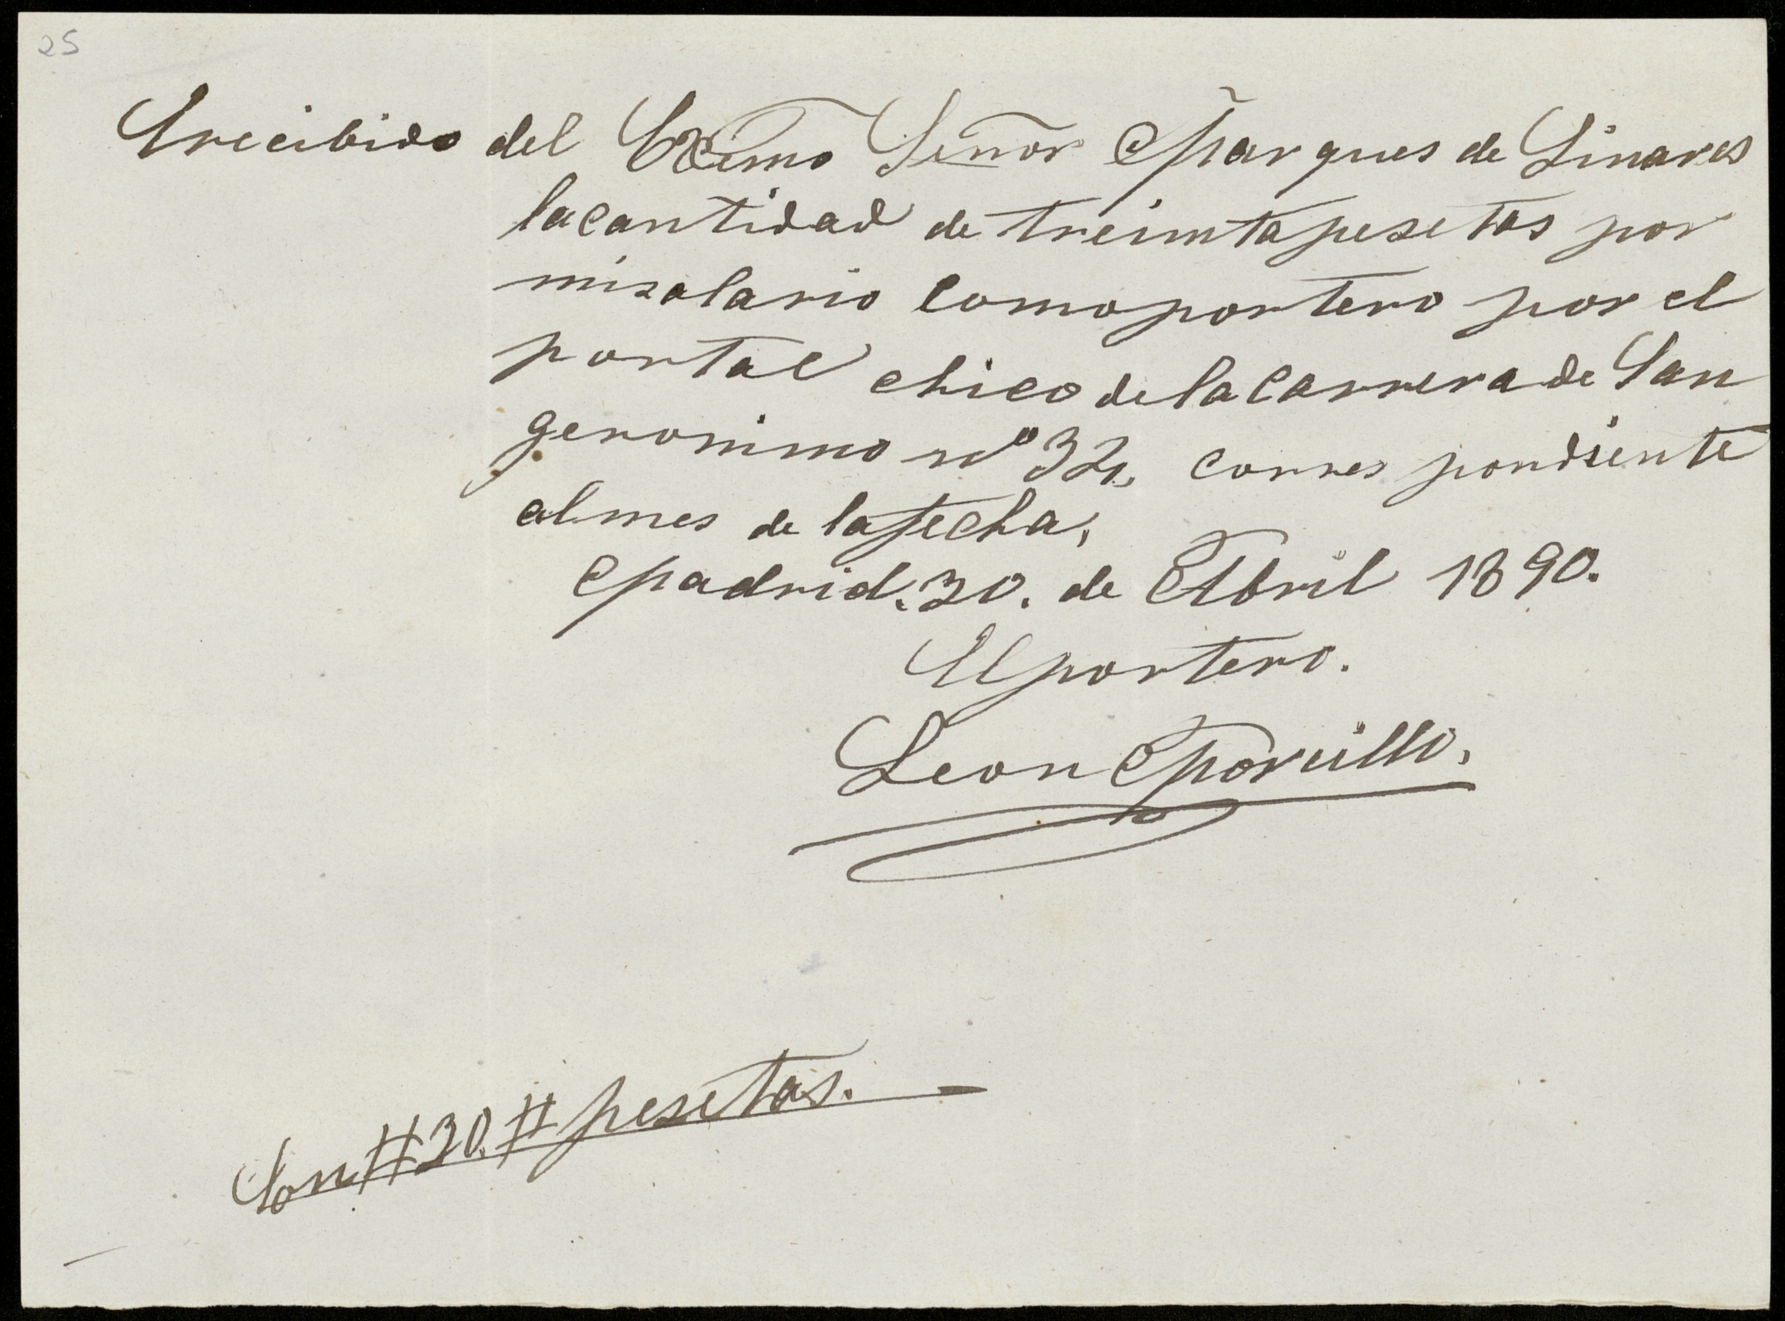 25
Erecibido del Excmo Señor Marques de Linares
la cantidad de treimta pesetas por
mi salario como portero por el
portal chico de la Carrera de San
geronimo nº 32, corres pondiente
al mes de la fecha,
Madrid. 30. de Abril 1890.
El portero.
Leon
Son #30.# pesetas.